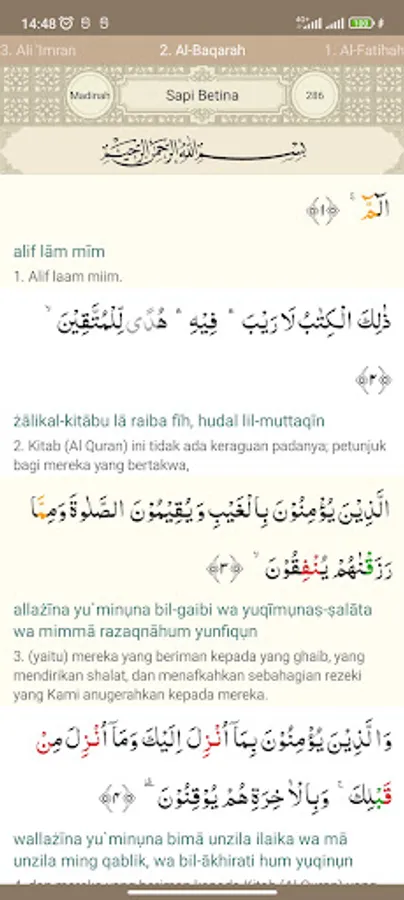 14:48
4G 100
3. Ali 'Imran 2. Al-Baqarah 1. Al-Fatihah
Madinah Sapi Betina 286
بِسْمِ اللّٰهِ الرَّحْمٰنِ الرَّحِيْمِ
الۤمّۤ ۚ ﴿١﴾
alif lām mīm
1. Alif laam miim.
ذٰلِكَ الْكِتٰبُ لَا رَيْبَ ۛ فِيْهِ ۛ هُدًى لِّلْمُتَّقِيْنَ ۙ
﴿٢﴾
żālikal-kitābu lā raiba fīh, hudal lil-muttaqīn
2. Kitab (Al Quran) ini tidak ada keraguan padanya; petunjuk
bagi mereka yang bertakwa,
الَّذِيْنَ يُؤْمِنُوْنَ بِالْغَيْبِ وَيُقِيْمُوْنَ الصَّلٰوةَ وَمِمَّا
رَزَقْنٰهُمْ يُنْفِقُوْنَ ۙ ﴿٣﴾
allażīna yu`minụna bil-gaibi wa yuqīmụnaṣ-ṣalāta
wa mimmā razaqnāhum yunfiqụn
3. (yaitu) mereka yang beriman kepada yang ghaib, yang
mendirikan shalat, dan menafkahkan sebahagian rezeki
yang Kami anugerahkan kepada mereka.
وَالَّذِيْنَ يُؤْمِنُوْنَ بِمَآ اُنْزِلَ اِلَيْكَ وَمَآ اُنْزِلَ مِنْ
قَبْلِكَ ۚ وَبِالْاٰخِرَةِ هُمْ يُوْقِنُوْنَ ۗ ﴿٤﴾
wallażīna yu`minụna bimā unzila ilaika wa mā
unzila ming qablik, wa bil-ākhirati hum yụqinụn
4. dan mereka yang beriman kepada Kitab (Al Quran) yang